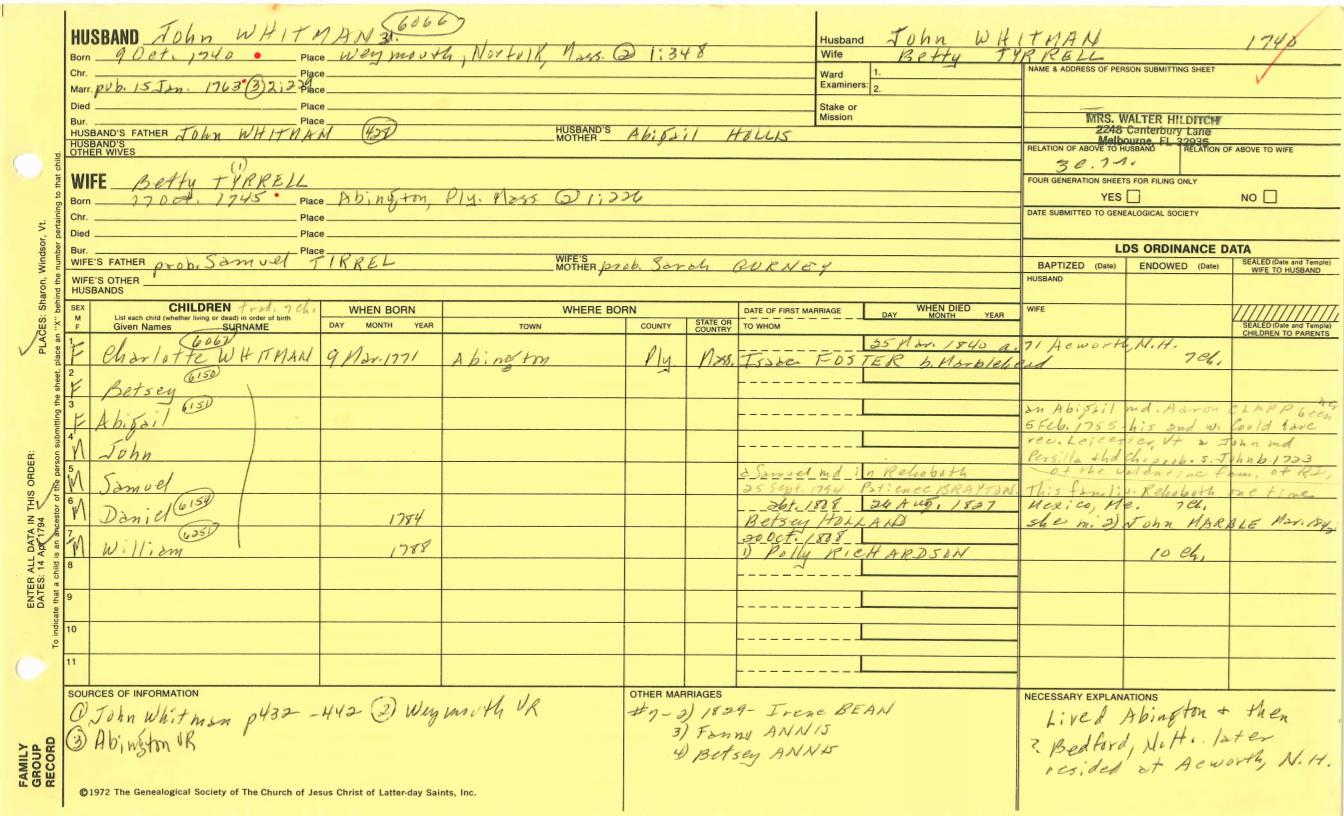 HUSBAND John WHITMAN 31. 6066
Born 9 Oct. 1740 Place Weymouth, Norfolk, Mass. ② 1:348
Chr. Place
Marr. pub. 15 Jan. 1763 ③ 2:229 Place
Died Place
Bur. Place
HUSBAND'S FATHER John WHITMAN 428 HUSBAND'S MOTHER Abigail HOLLIS
HUSBAND'S OTHER WIVES
Husband John WHITMAN 1740
Wife Betty TYRRELL
Ward Examiners: 1.
2.
Stake or Mission
NAME & ADDRESS OF PERSON SUBMITTING SHEET
MRS. WALTER HILDITCH
2248 Canterbury Lane
Melbourne, FL 32935
RELATION OF ABOVE TO HUSBAND RELATION OF ABOVE TO WIFE
FOUR GENERATION SHEETS FOR FILING ONLY
YES NO
DATE SUBMITTED TO GENEALOGICAL SOCIETY
(1)
WIFE Betty TYRRELL
Born 27 Oct. 1745 Place Abington, Ply. Mass ② 1:226
Chr. Place
Died Place
Bur. Place
WIFE'S FATHER prob. Samuel TIRREL WIFE'S MOTHER prob. Sarah GURNEY
WIFE'S OTHER HUSBANDS
LDS ORDINANCE DATA
BAPTIZED (Date) ENDOWED (Date) SEALED (Date and Temple) WIFE TO HUSBAND
HUSBAND
WIFE
SEALED (Date and Temple) CHILDREN TO PARENTS
SEX M F
CHILDREN 7 ch.
List each child (whether living or dead) in order of birth
Given Names SURNAME
WHEN BORN
DAY MONTH YEAR
WHERE BORN
TOWN COUNTY STATE OR COUNTRY
DATE OF FIRST MARRIAGE
TO WHOM
WHEN DIED
DAY MONTH YEAR
6067
25 Mar. 1840 a. 71 Acworth, N.H.
1 F Charlotte WHITMAN 9 Mar. 1771 Abington Ply. Mass. Isaac FOSTER b. Marblehead 7 ch.
2 F Betsey 6150
3 F Abigail 6151
an Abigail md. Aaron CLAPP
5 Feb. 1755 - his 2nd w. Could have
4 M John
rev. Leicester, Vt a John md
5 M Samuel
a Samuel md in Rehoboth
25 Sept. 1794 Patience BRAYTON
This family Rehoboth one time
6 M Daniel 6154 1784
1808 24 Aug. 1827 Mexico, Me. 7 ch.
Betsey HOLLAND she m. 2) John MARBLE Mar. 1842
7 M William 6251 1788
20 Oct. 1808
1) Polly RICHARDSON 10 ch.
8
9
10
11
SOURCES OF INFORMATION
① John Whitman p432 -442 ② Weymouth VR
③ Abington VR
OTHER MARRIAGES
#7-2) 1829- Irene BEAN
3) Fanny ANNIS
4) Betsey ANNIS
NECESSARY EXPLANATIONS
Lived Abington & then
? Bedford, N.H. later
resided at Acworth, N.H.
©1972 The Genealogical Society of The Church of Jesus Christ of Latter-day Saints, Inc.
FAMILY GROUP RECORD
ENTER ALL DATA IN THIS ORDER:
DATES: 14 Apr 1794 PLACES: Sharon, Windsor, Vt.
To indicate that a child is an ancestor of the person submitting the sheet, place an "X" behind the number pertaining to that child.